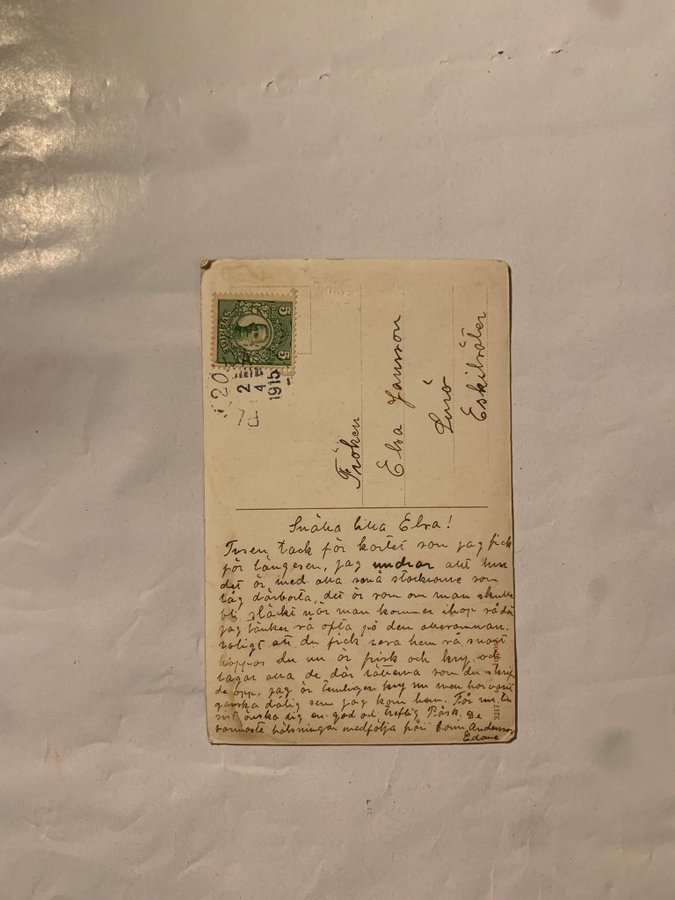 5 SVERIGE 5
2 4 1915
Fröken
Elsa Jansson
Eskilsäter
Snälla lilla Elsa!
Tusen tack för kortet som jag fick
för längesen, jag undrar allt hur
det är med alla små stackarne som
låg därborta, det är som om man skulle
bli släkt när man kommer ihop så där
jag tänker så ofta på den
roligt att du fick resa hem så snart
hoppas du nu är frisk och kry, och
lagar alla de där rätterna som du skref
de opp, jag är temligen kry nu men har varit
ganska dålig sen jag kom hem. Får nu till
sist önska dig en god och treflig Påsk. De
varmaste hälsningar medfölja från Andersson
Edane
3217